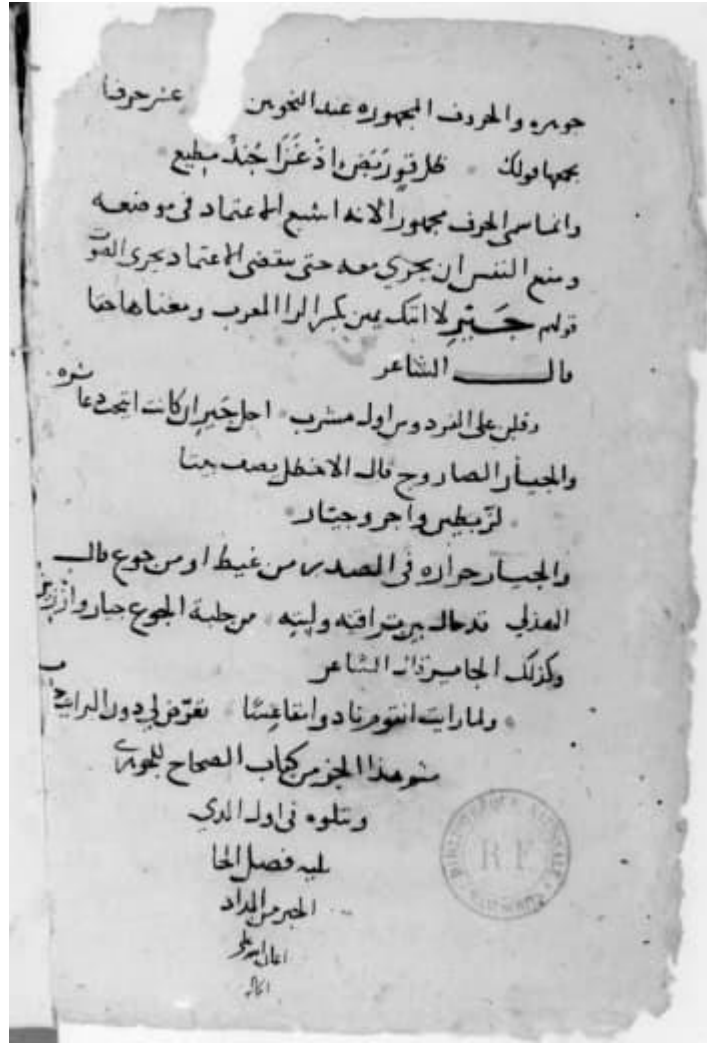 جوهره والحروف المجهورة عند النحويين عشر حرفا
يجمعها قولك ظل قو ربض اذ غزا جند مطيع
وانما سمى الحرف مجهورا لانه اشبع الاعتماد فى موضعه
ومنع النفس ان يجري معه حتى ينقضى الاعتماد بجرى الصوت
قولهم جير لا اتيك يمين بكسر الرا للعرب ومعناها حقا
قال الشاعر
وقلن على الفردوس اول مشرب اجل جير ان كانت ابيحت دعاثره
والجيار الصاروج قال الاخطل يصف بيتا
لز بطين واجر وجيار
والجيار حراره فى الصدر من غيظ او من جوع قال
الهذلي قد حال بين تراقيه ولبته من جلبة الجوع جيار وارزيز
وكذلك الجاير قال الشاعر
ولما رايت القوم نادوا مقاعسا تعرض لي دون الترايب
هذا الجز من كتاب الصحاح للجوهري
ويتلوه فى اول الذي
يليه فصل الحا
الحبر من المداد
R F